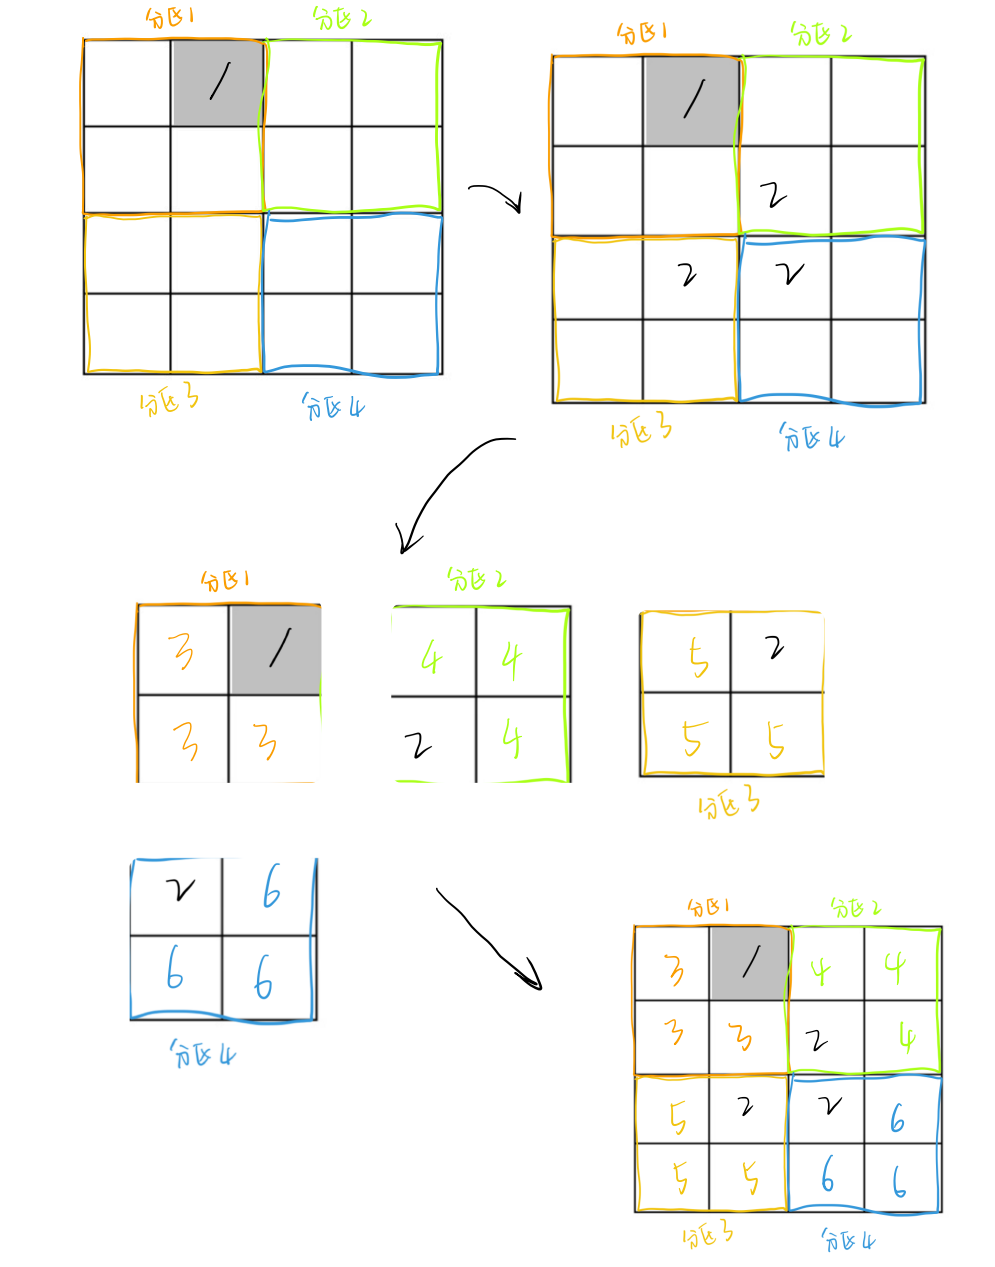 分区1 分区2
1
分区3 分区4
分区1 分区2
1
2
2 2
分区3 分区4
分区1 分区2
3 1
3 3
4 4
2 4
5 2
5 5
分区3
2 6
6 6
分区4
分区1 分区2
3 1 4 4
3 3 2 4
5 2 2 6
5 5 6 6
分区3 分区4